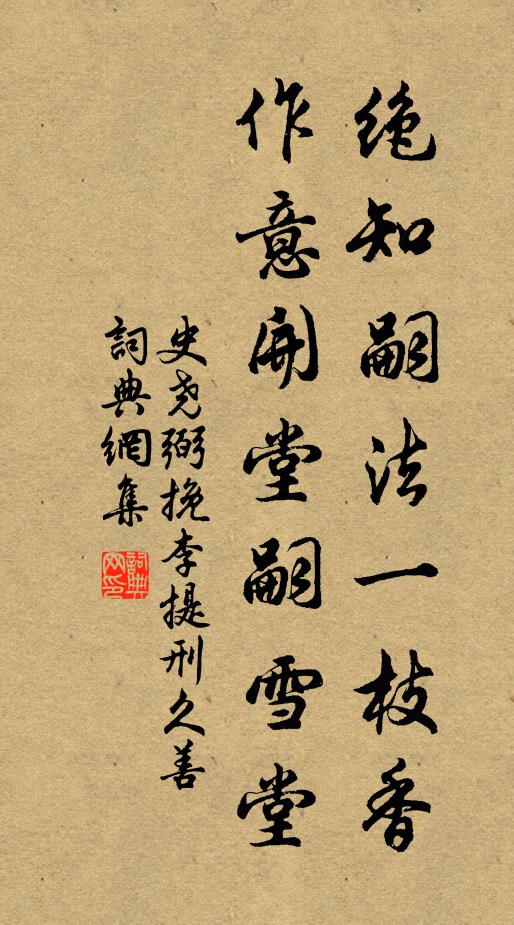 絶知嗣法一枝香
作意開堂嗣雪堂
史尧弼挽李提刑久善
詞典網集
詞典
网印